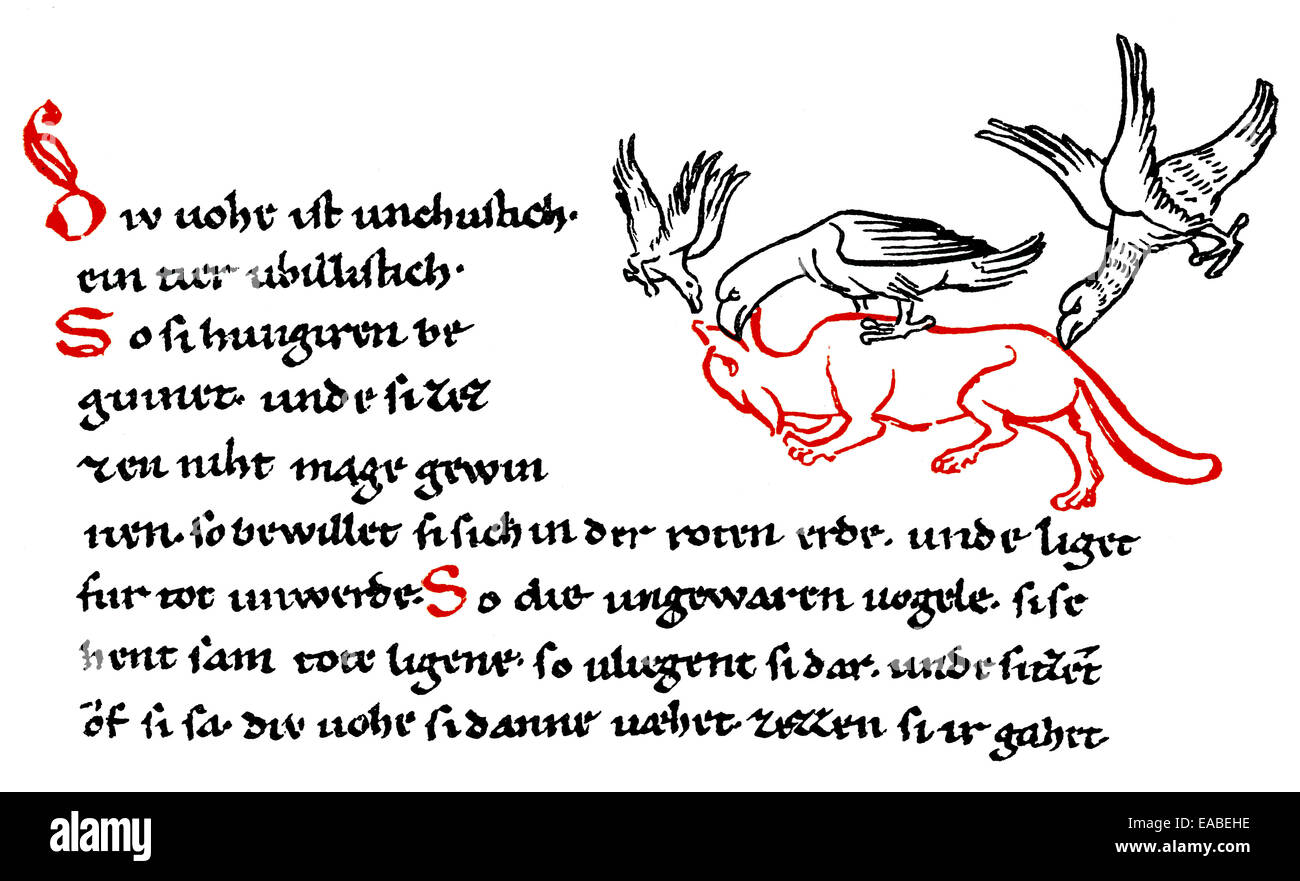 Diu uohe ist unchustich·
ein tier ubillistich·
So si hungiren be
ginnet· unde si ezzet
zen niht mage gewin
nen· so bewillet si sich in der roten erde· unde liget
fur tot unwerde· So die ungewaren uogele· si se
hent sam tote ligene· so uliegent si dar· unde sitzēt
ŏf si sa· die uohe si danne uæhet· zezzen si ir gahet·
alamy stock photo
EABEHE
www.alamy.com